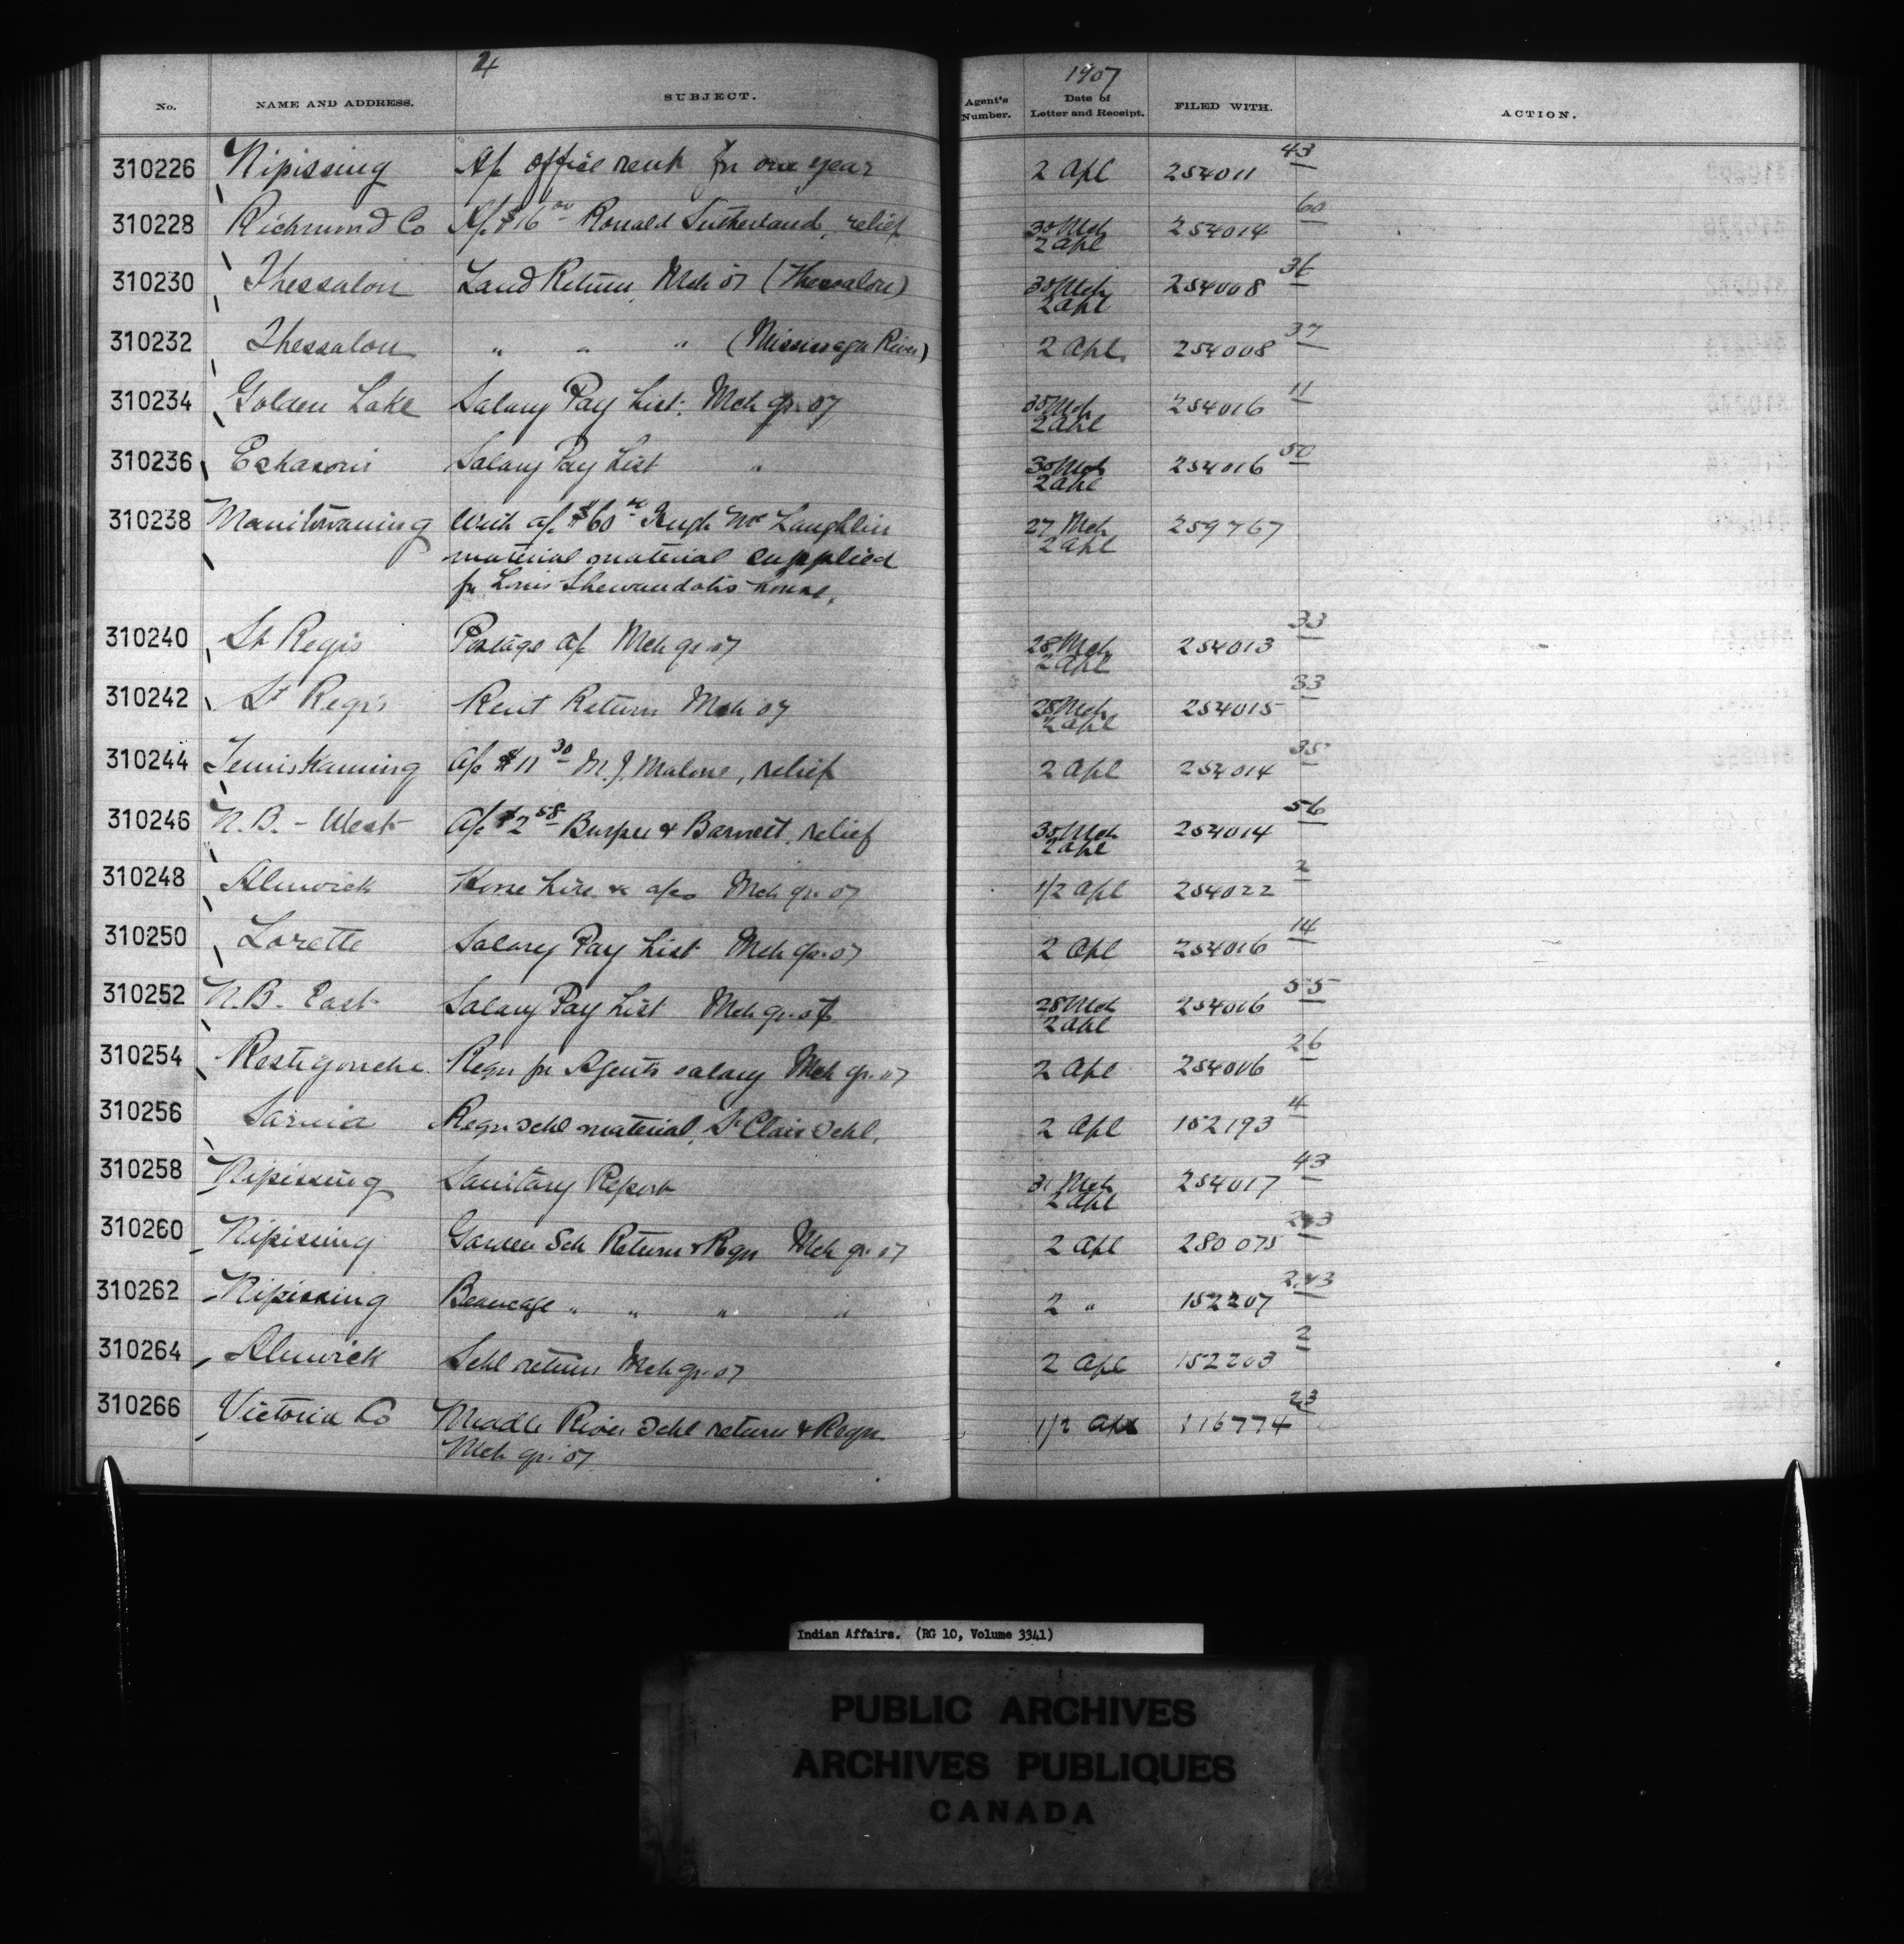 4
1907
No. NAME AND ADDRESS. SUBJECT. Agent's Number. Date of Letter and Receipt. FILED WITH. ACTION.
310226 Nipissing A/c office rent for one year 2 Apl 254011 43
310228 Richmond Co A/c $16 00 Ronald Sutherland, relief 30 Mch 2 Apl 254014 60
310230 Thessalon Land Return Mch 07 (Thessalon) 30 Mch 2 Apl 254008 36
310232 Thessalon " " " (Mississaga River) 2 Apl 254008 37
310234 Golden Lake Salary Pay List. Mch qr. 07 30 Mch 2 Apl 254016 11
310236 Eskasoni Salary Pay List " 30 Mch 2 Apl 254016 50
310238 Manitowaning With a/c $60 Hugh McLaughlin 27 Mch 2 Apl 259767
material material supplied
for Louis Shewandatis house.
310240 St Regis Postage a/c Mch qr 07 28 Mch 2 Apl 254013 33
310242 St Regis Rent Return Mch 07 28 Mch 2 Apl 254015 33
310244 Temiskaming A/c $11 30 M.J. Malone, relief 2 Apl 254014 35
310246 N.B. - West A/c $2 58 Burpee & Barnett, relief 30 Mch 2 Apl 254014 56
310248 Alnwick Horse hire & a/cs Mch qr. 07 1/2 Apl 254022 2
310250 Lorette Salary Pay List Mch qr. 07 2 Apl 254016 14
310252 N.B. East Salary Pay List Mch qr. 07 28 Mch 2 Apl 254016 55
310254 Restigouche Reqn for Agents salary Mch qr. 07 2 Apl 254006 26
310256 Sarnia Reqn Schl material, St Clair Schl. 2 Apl 152193 4
310258 Nipissing Sanitary Report 31 Mch 2 Apl 254017 43
310260 Nipissing Garden Sch Return & Reqn Mch qr 07 2 Apl 280075
310262 Nipissing Beaucage " " " " 2 " 152207 243
310264 Alnwick Schl return Mch qr. 07 2 Apl 152203 2
310266 Victoria Co Middle River Schl return & Reqn 1/2 Apl 116774 23
Mch qr. 07
Indian Affairs. (RG 10, Volume 3341)
PUBLIC ARCHIVES
ARCHIVES PUBLIQUES
CANADA